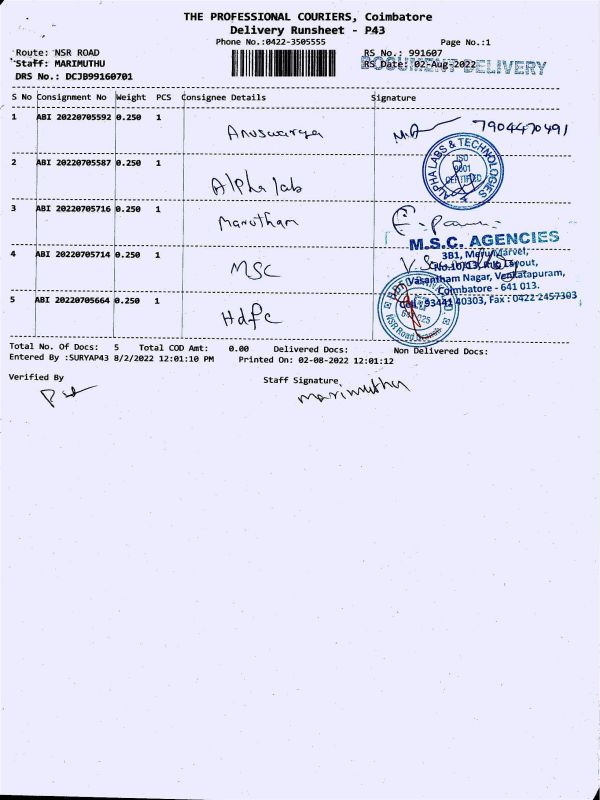 THE PROFESSIONAL COURIERS, Coimbatore
Delivery Runsheet - P43
Phone No.:0422-3505555
Page No.:1
Route: NSR ROAD
RS No.: 991607
Staff: MARIMUTHU
RS Date: 02-Aug-2022
DOCUMENT DELIVERY
DRS No.: DCJB99160701
S No Consignment No Weight PCS Consignee Details Signature
1 ABI 20220705592 0.250 1
Anuswarya 7904470491
2 ABI 20220705587 0.250 1
Alpha lab
ALPHA LABS & TECHNOLOGIES
ISO
9001
CERTIFIED
3 ABI 20220705716 0.250 1
Marutham
M.S.C. AGENCIES
3B1, Meru Marvel,
4 ABI 20220705714 0.250 1
MSC
No.10/13, Layout,
Vasantham Nagar, Venkatapuram,
Coimbatore - 641 013.
Cell : 93441 40303, Fax : 0422 2457303
5 ABI 20220705664 0.250 1
Hdfc
641 025
NSR Road
Total No. Of Docs: 5 Total COD Amt: 0.00 Delivered Docs: Non Delivered Docs:
Entered By :SURYAP43 8/2/2022 12:01:10 PM Printed On: 02-08-2022 12:01:12
Verified By
Staff Signature
Marimuthu